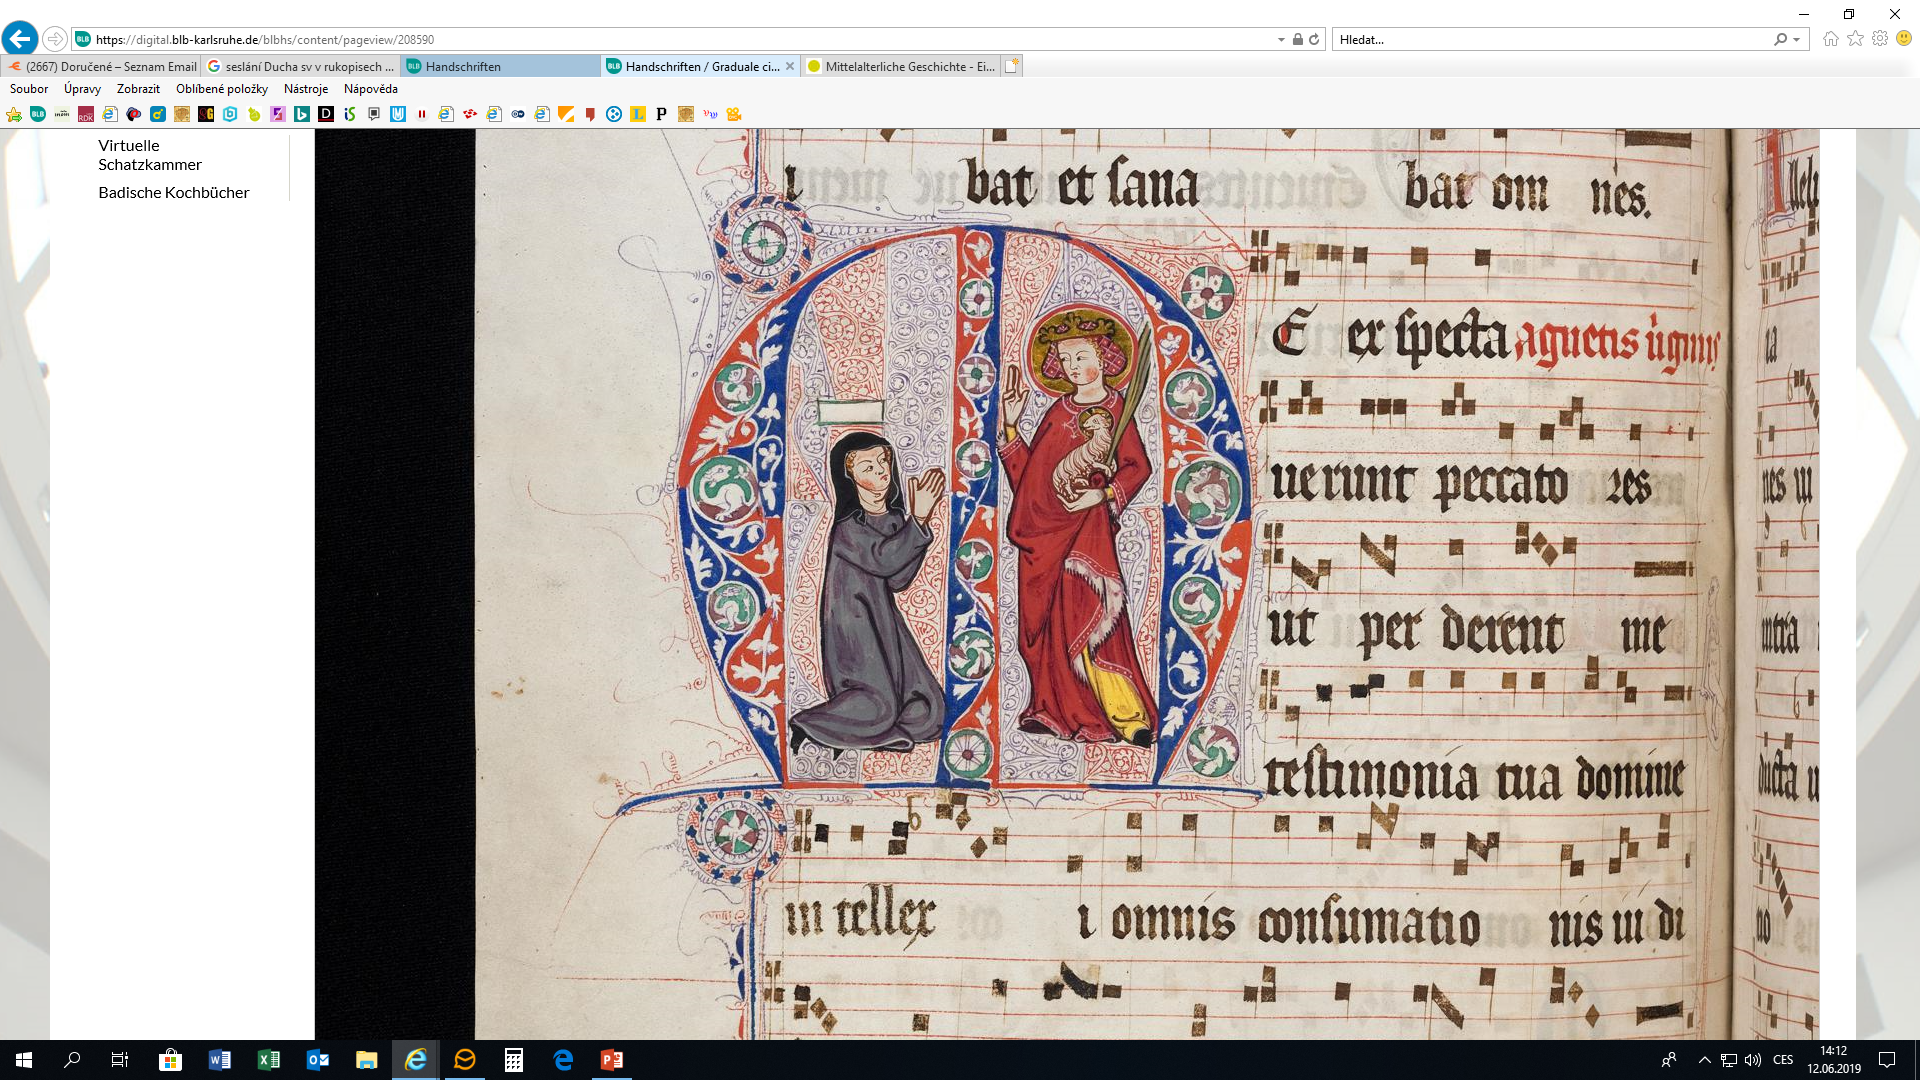 https://digital.blb-karlsruhe.de/blbhs/content/pageview/208590
Hledat...
(2667) Doručené – Seznam Email
seslání Ducha sv v rukopisech ...
Handschriften
Handschriften / Graduale ci...
Mittelalterliche Geschichte - Ei...
Soubor
Úpravy
Zobrazit
Oblíbené položky
Nástroje
Nápověda
Virtuelle
Schatzkammer
Badische Kochbücher
bat et sana bat om nes.
E ex specta agnetis
uerunt peccato res
ut per derent me
testimonia tua domine
in tellex i omnis consumatio nis ui di
nes
intra
ducta
CES
14:12
12.06.2019